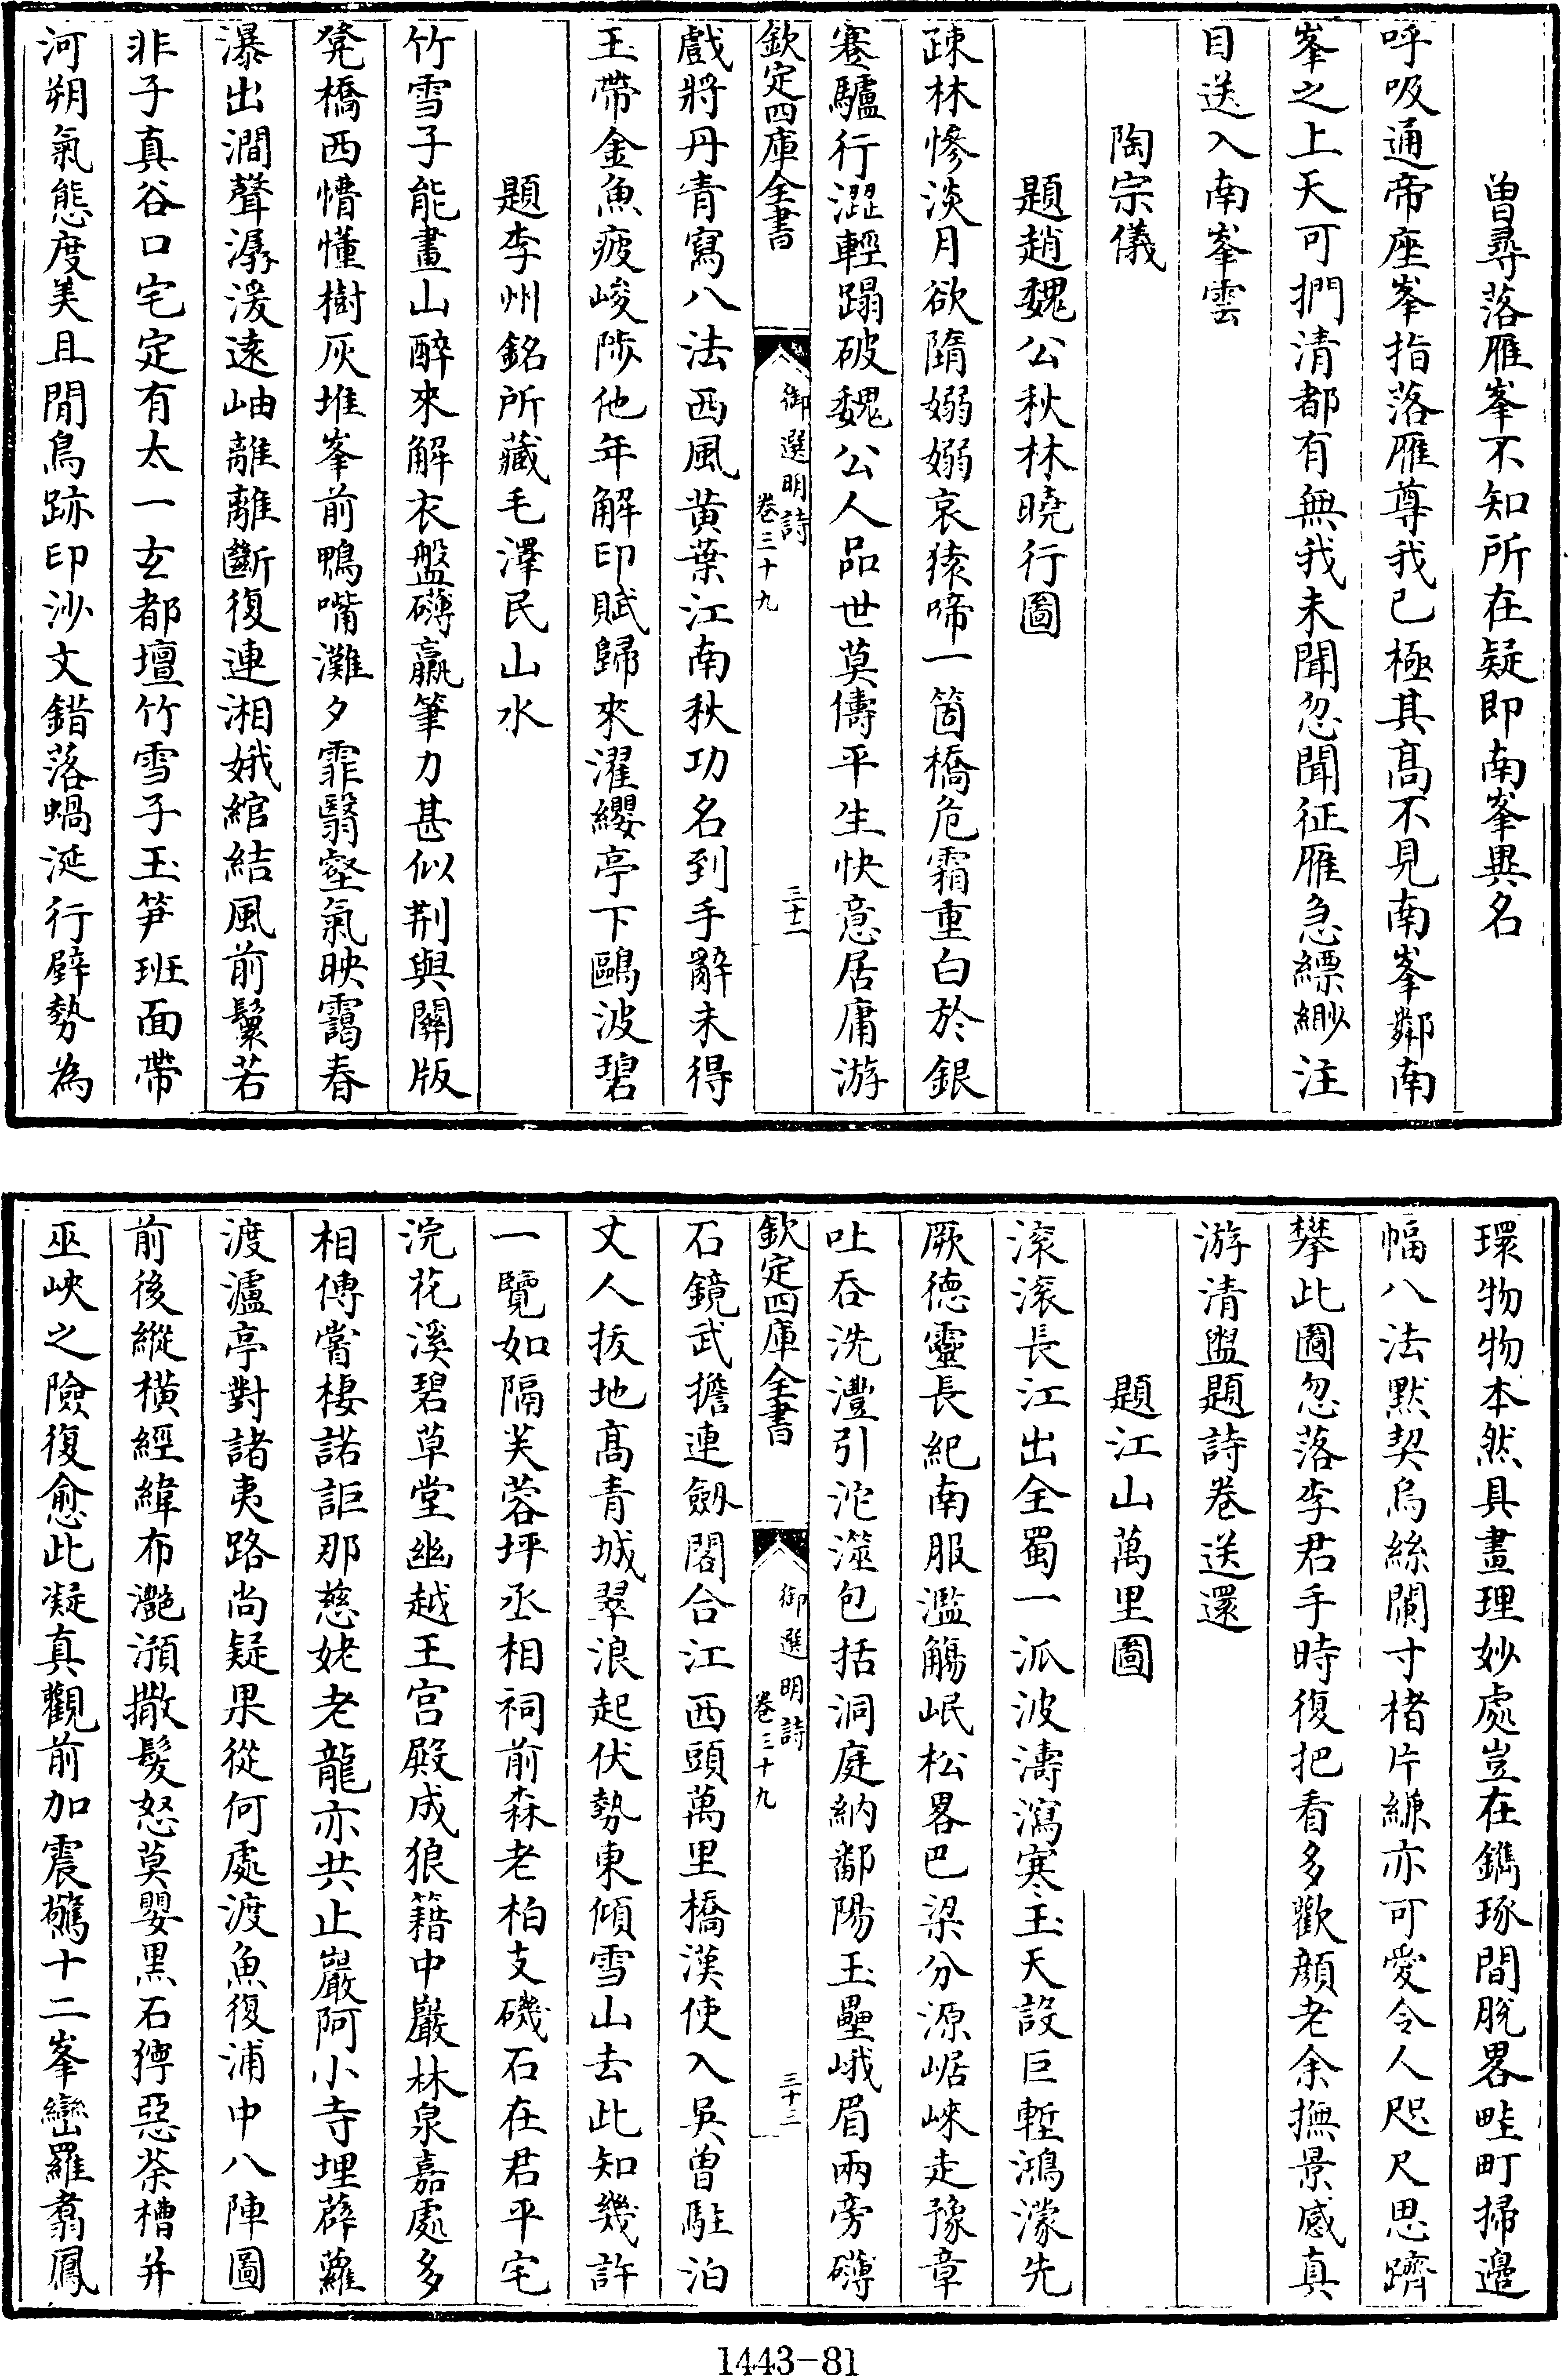 曽尋落雁峯不知所在疑即南峯異名
呼吸通帝座峯指落雁尊我已極其髙不見南峯鄰南
峯之上天可捫清都有無我未聞忽聞征雁急縹緲注
目送入南峯雲
陶宗儀
題趙魏公秋林曉行圖
疎林慘淡月欲隋嫋嫋哀猿啼一箇橋危霜重白於銀
蹇驢行澀輕蹋破魏公人品世莫儔平生快意居庸游
欽定四庫全書
御選明詩
卷三十九
三十二
戲將丹青寫八法西風黄葉江南秋功名到手辭未得
玉帶金魚疲峻陟他年解印賦歸來濯纓亭下鷗波碧
題李州銘所藏毛澤民山水
竹雪子能畫山醉來解衣盤礴贏筆力甚似荆與關版
凳橋西慒懂樹灰堆峯前鴨嘴灘夕霏翳壑氣映靄春
瀑出澗聲潺湲逺岫離離斷復連湘娥綰結風前鬟若
非子真谷口宅定有太一玄都壇竹雪子玉笋班面帶
河朔氣態度美且閒鳥跡印沙文錯落蝸涎行壁勢為
環物物本然具畫理妙處豈在鐫琢間脱畧畦町掃邉
幅八法黙契烏絲闌寸楮片縑亦可愛令人咫尺思躋
攀此圖忽落李君手時復把看多歡顔老余撫景感真
游清盥題詩卷送還
題江山萬里圖
滚滚長江出全蜀一派波濤瀉寒玉天設巨塹鴻濛先
厥德靈長紀南服濫觴岷松畧巴梁分源崌崍走豫章
吐吞洗灃引沱澨包括洞庭納鄱陽玉壘峨眉兩旁礴
欽定四庫全書
御選明詩
卷三十九
三十三
石鏡武擔連劔閣合江西頭萬里橋漢使入吳曽駐泊
丈人拔地髙青城翠浪起伏勢東傾雪山去此知幾許
一覽如隔芙蓉坪丞相祠前森老柏支磯石在君平宅
浣花溪碧草堂幽越王宫殿成狼籍中巖林泉嘉處多
相傳嘗棲諾詎那慈姥老龍亦共止巖阿小寺埋薜蘿
渡瀘亭對諸夷路尚疑果從何處渡魚復浦中八陣圖
前後縱横經緯布灔澦撒髮怒莫嬰黒石獰惡蔡槽并
巫峽之險復愈此凝真觀前加震驚十二峯巒羅翥鳳
1443-81